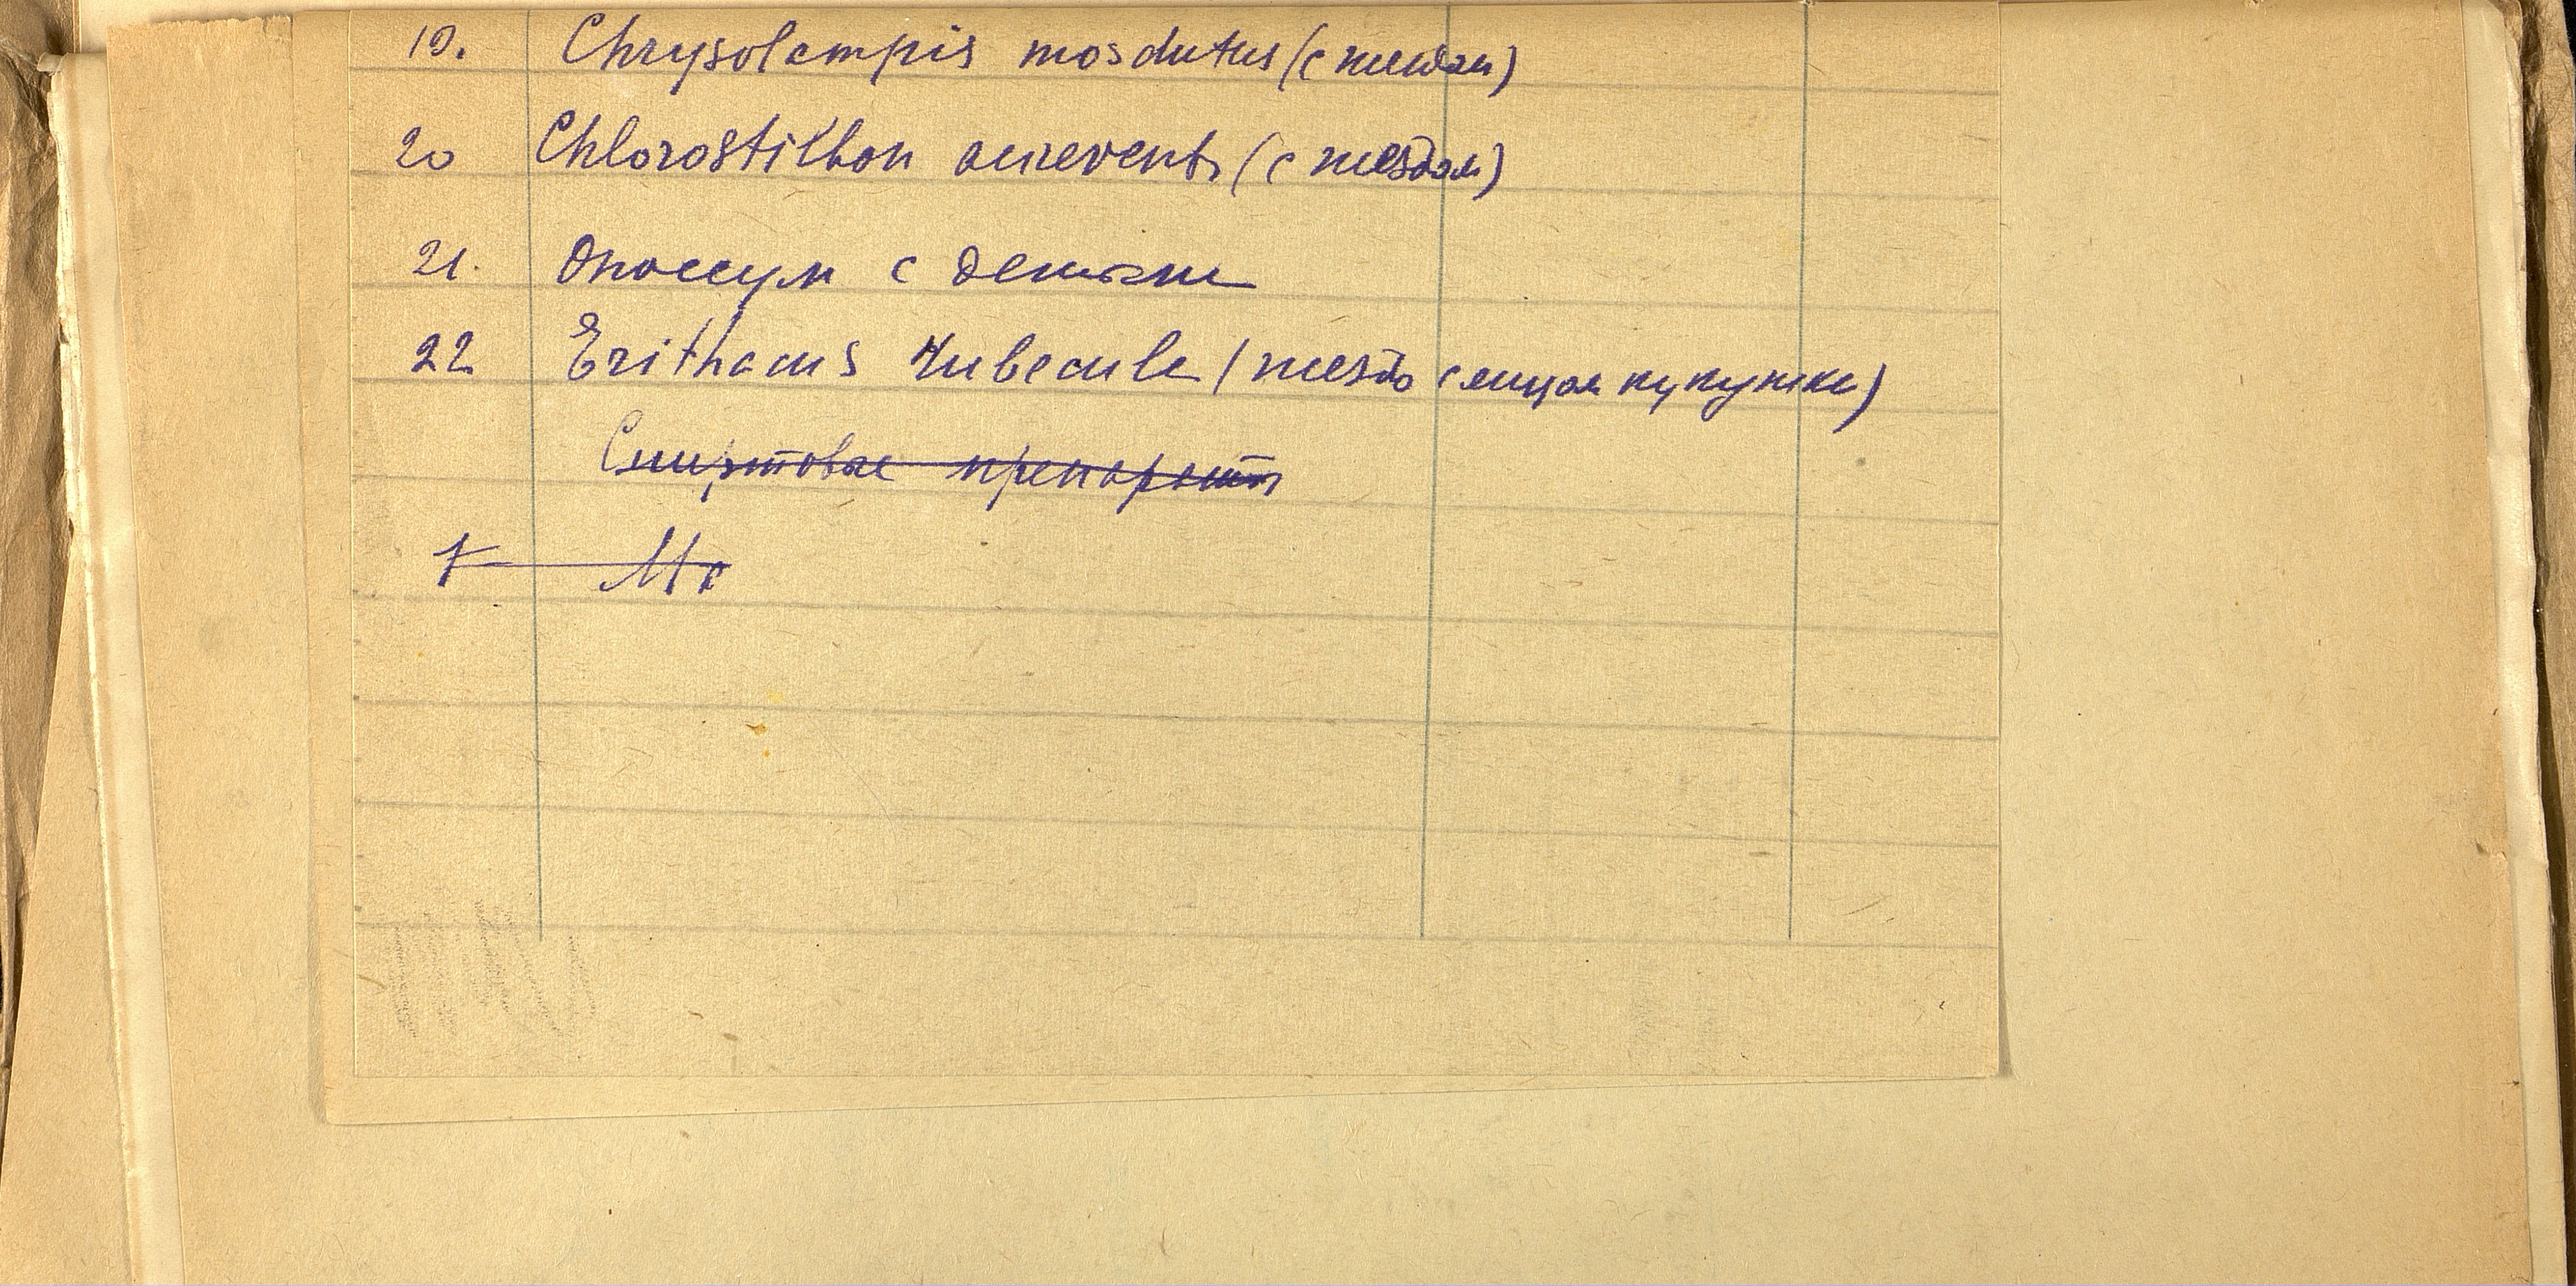 19. Chrysolampis mosquitus (с гнездом)
20 Chlorostilbon aureventr (с гнездом)
21. Опоссум с детьми
22 Erithacus rubecula (гнездо с яйцом кукушки)
Спиртовые препараты
1 Мо